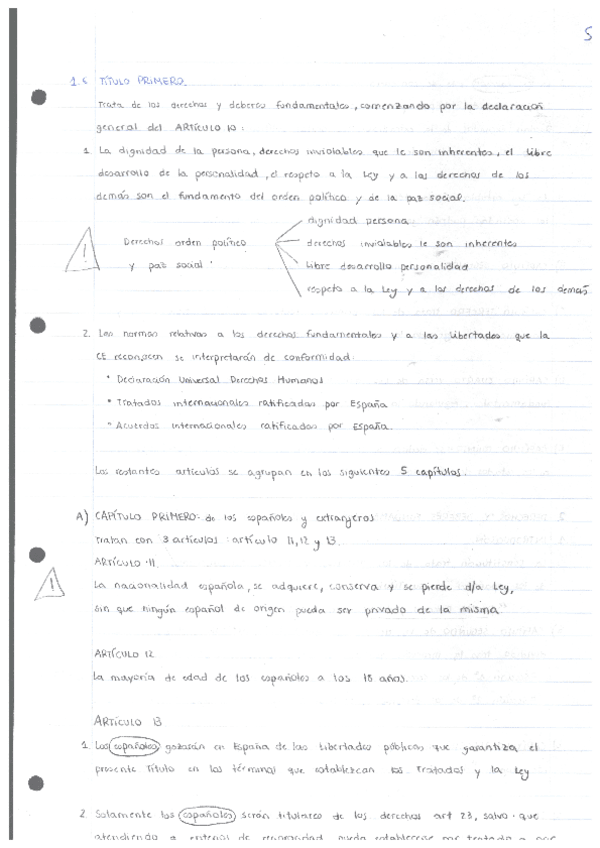 5
1.5 TÍTULO PRIMERO.
Trata de los derechos y deberes fundamentales, comenzando por la declaración
general del ARTÍCULO 10:
1. La dignidad de la persona, derechos inviolables que le son inherentes, el libre
desarrollo de la personalidad, el respeto a la Ley y a los derechos de los
demás son el fundamento del orden político y de la paz social.
dignidad persona
Derechos orden político derechos inviolables le son inherentes
! y paz social libre desarrollo personalidad
respeto a la Ley y a los derechos de los demás
2. Las normas relativas a los derechos fundamentales y a las libertades que la
CE reconocen se interpretarán de conformidad:
• Declaración Universal Derechos Humanos
• Tratados internacionales ratificados por España
• Acuerdos internacionales ratificados por España.
Los restantes artículos se agrupan en los siguientes 5 capítulos.
A) CAPÍTULO PRIMERO: de los españoles y extranjeros
Tratan con 3 artículos: artículo 11, 12 y 13.
ARTÍCULO 11
! La nacionalidad española, se adquiere, conserva y se pierde d/a Ley,
sin que ningún español de origen pueda ser privado de la misma.
ARTÍCULO 12
La mayoría de edad de los españoles a los 18 años.
ARTÍCULO 13
1. Los españoles gozarán en España de las libertades públicas que garantiza el
presente Título en los términos que establezcan los Tratados y la Ley
2. Solamente los españoles serán titulares de los derechos art 23, salvo que
atendiendo a criterios de reciprocidad pueda establecerse por tratado o por